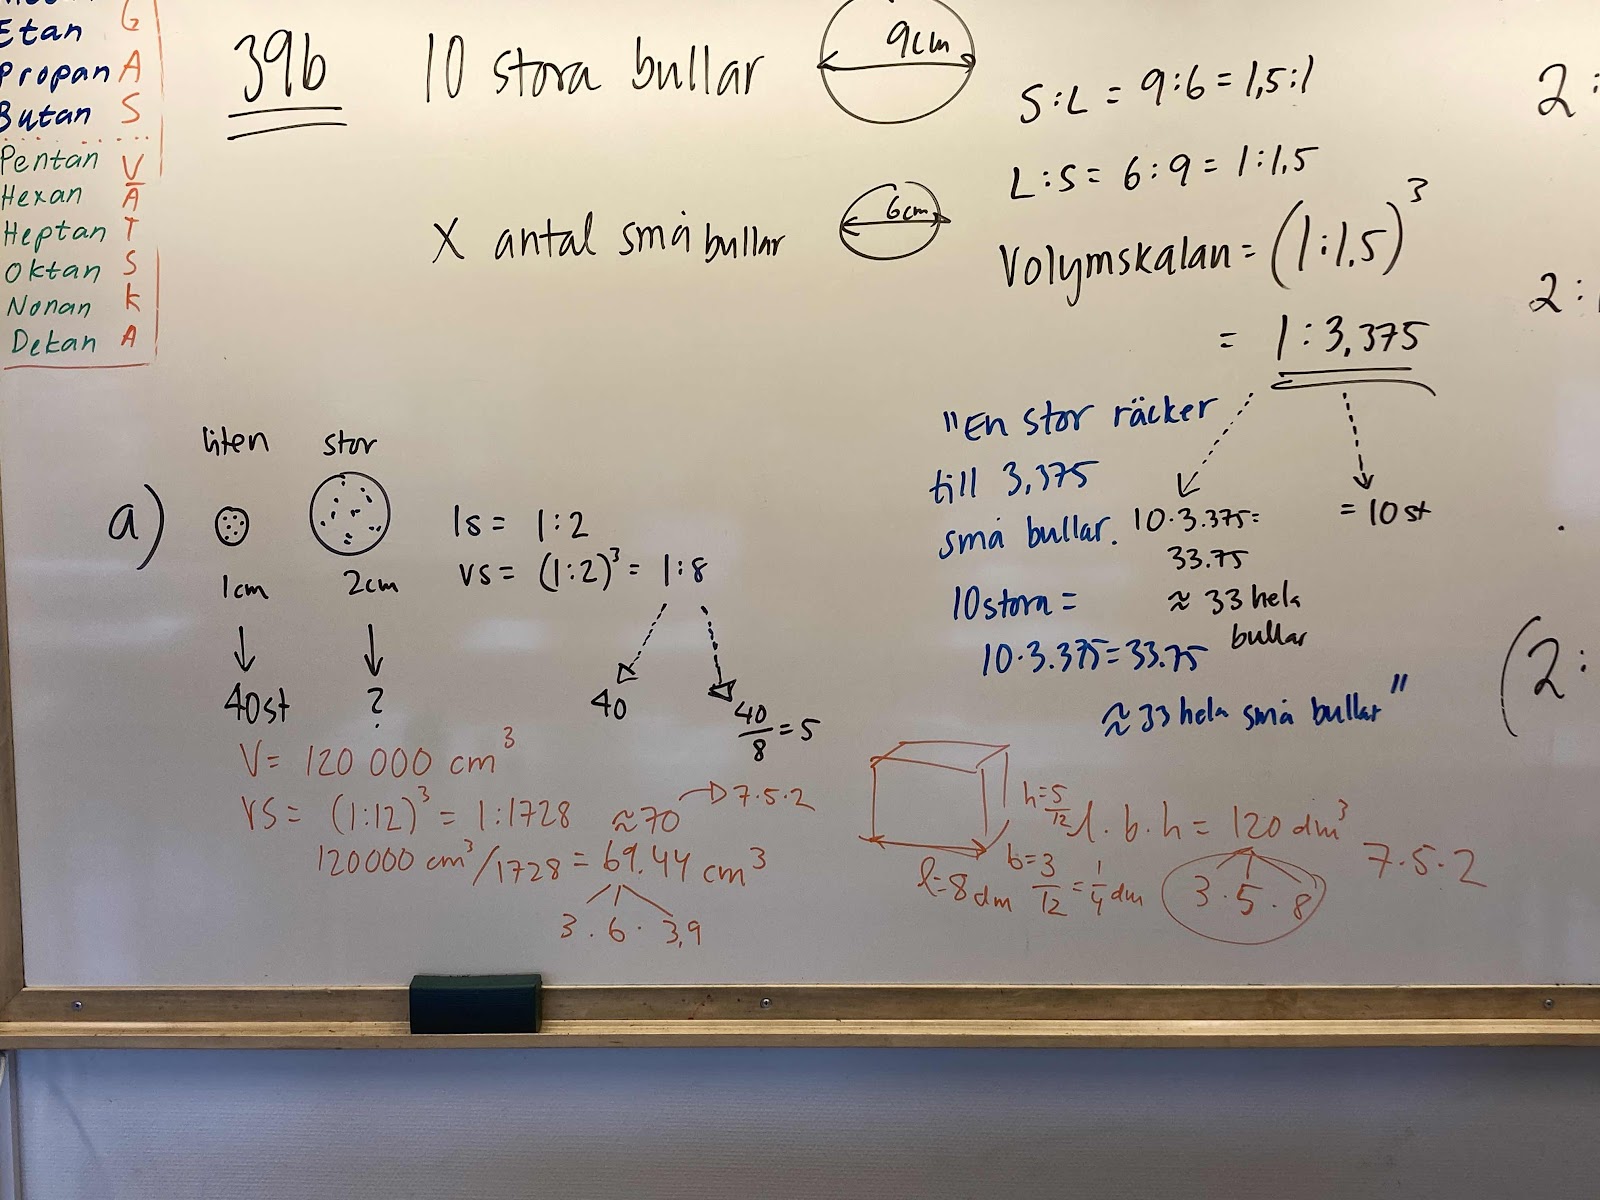 Etan G
Propan A
Butan S
Pentan V
Hexan Ä
Heptan T
Oktan S
Nonan K
Dekan A
39b 10 stora bullar
9cm
X antal små bullar
6cm
S:L = 9:6 = 1,5:1
L:S = 6:9 = 1:1,5
Volymskalan = (1:1,5)³
= 1:3,375
10·3.375=
33.75
≈ 33 hela
bullar
= 10st
"En stor räcker
till 3,375
små bullar.
10stora =
10·3.375=33.75
≈33 hela små bullar"
a)
liten stor
1cm 2cm
40st ?
ls = 1:2
vs = (1:2)³ = 1:8
40
40/8 = 5
V = 120 000 cm³
VS = (1:12)³ = 1:1728 ≈70 → 7·5·2
120000 cm³/1728 = 69.44 cm³
3 · 6 · 3,9
h=5/12
b=3/12=1/4 dm
l=8dm
l·b·h = 120 dm³
3·5·8
7·5·2
2:
2:
(2: